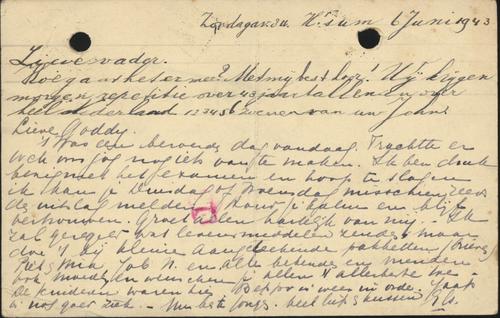 Zondagav. 8 u. H'sum 6 Juni 1943
Lieve vader.
Hoe gaat het er mee? Met mij best hoor. Wij krijgen
morgen repetitie over jaartallen en over
heel Nederland 123456 zoenen van uw John
Lieve Goddy.
't Was een beroerde dag vandaag. Trachtte er
voor ons nog iets van te maken. Ik ben druk
bezig met het examen en hoop te slagen
ik kan je Dinsdag of Woensdag misschien reeds
de uitslag melden. Hou je kalm en blijf
vertrouwen. Groet allen hartelijk van mij. Ik
zal geregeld wat levensmiddelen zenden maar
doe 't bij kleine aangetekende pakketten.
en alle bekenden en vrienden
ook moeder en wenschen je allen 't allerbeste toe
De kinderen waren hier. was weer in orde. Jaap
is nog zeer ziek. beste jongs. heel veel kussen